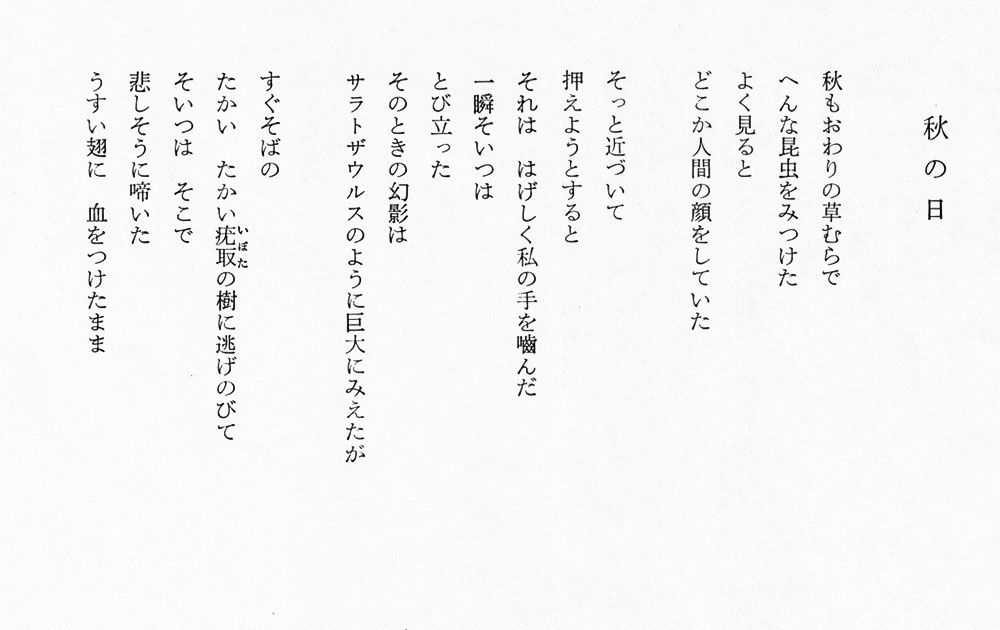 秋の日
秋もおわりの草むらで
へんな昆虫をみつけた
よく見ると
どこか人間の顔をしていた
そっと近づいて
押えようとすると
それは　はげしく私の手を嚙んだ
一瞬そいつは
とび立った
そのときの幻影は
サラトザウルスのように巨大にみえたが
すぐそばの
たかい　たかい疣取の樹に逃げのびて
いぼた
そいつは　そこで
悲しそうに啼いた
うすい翅に　血をつけたまま